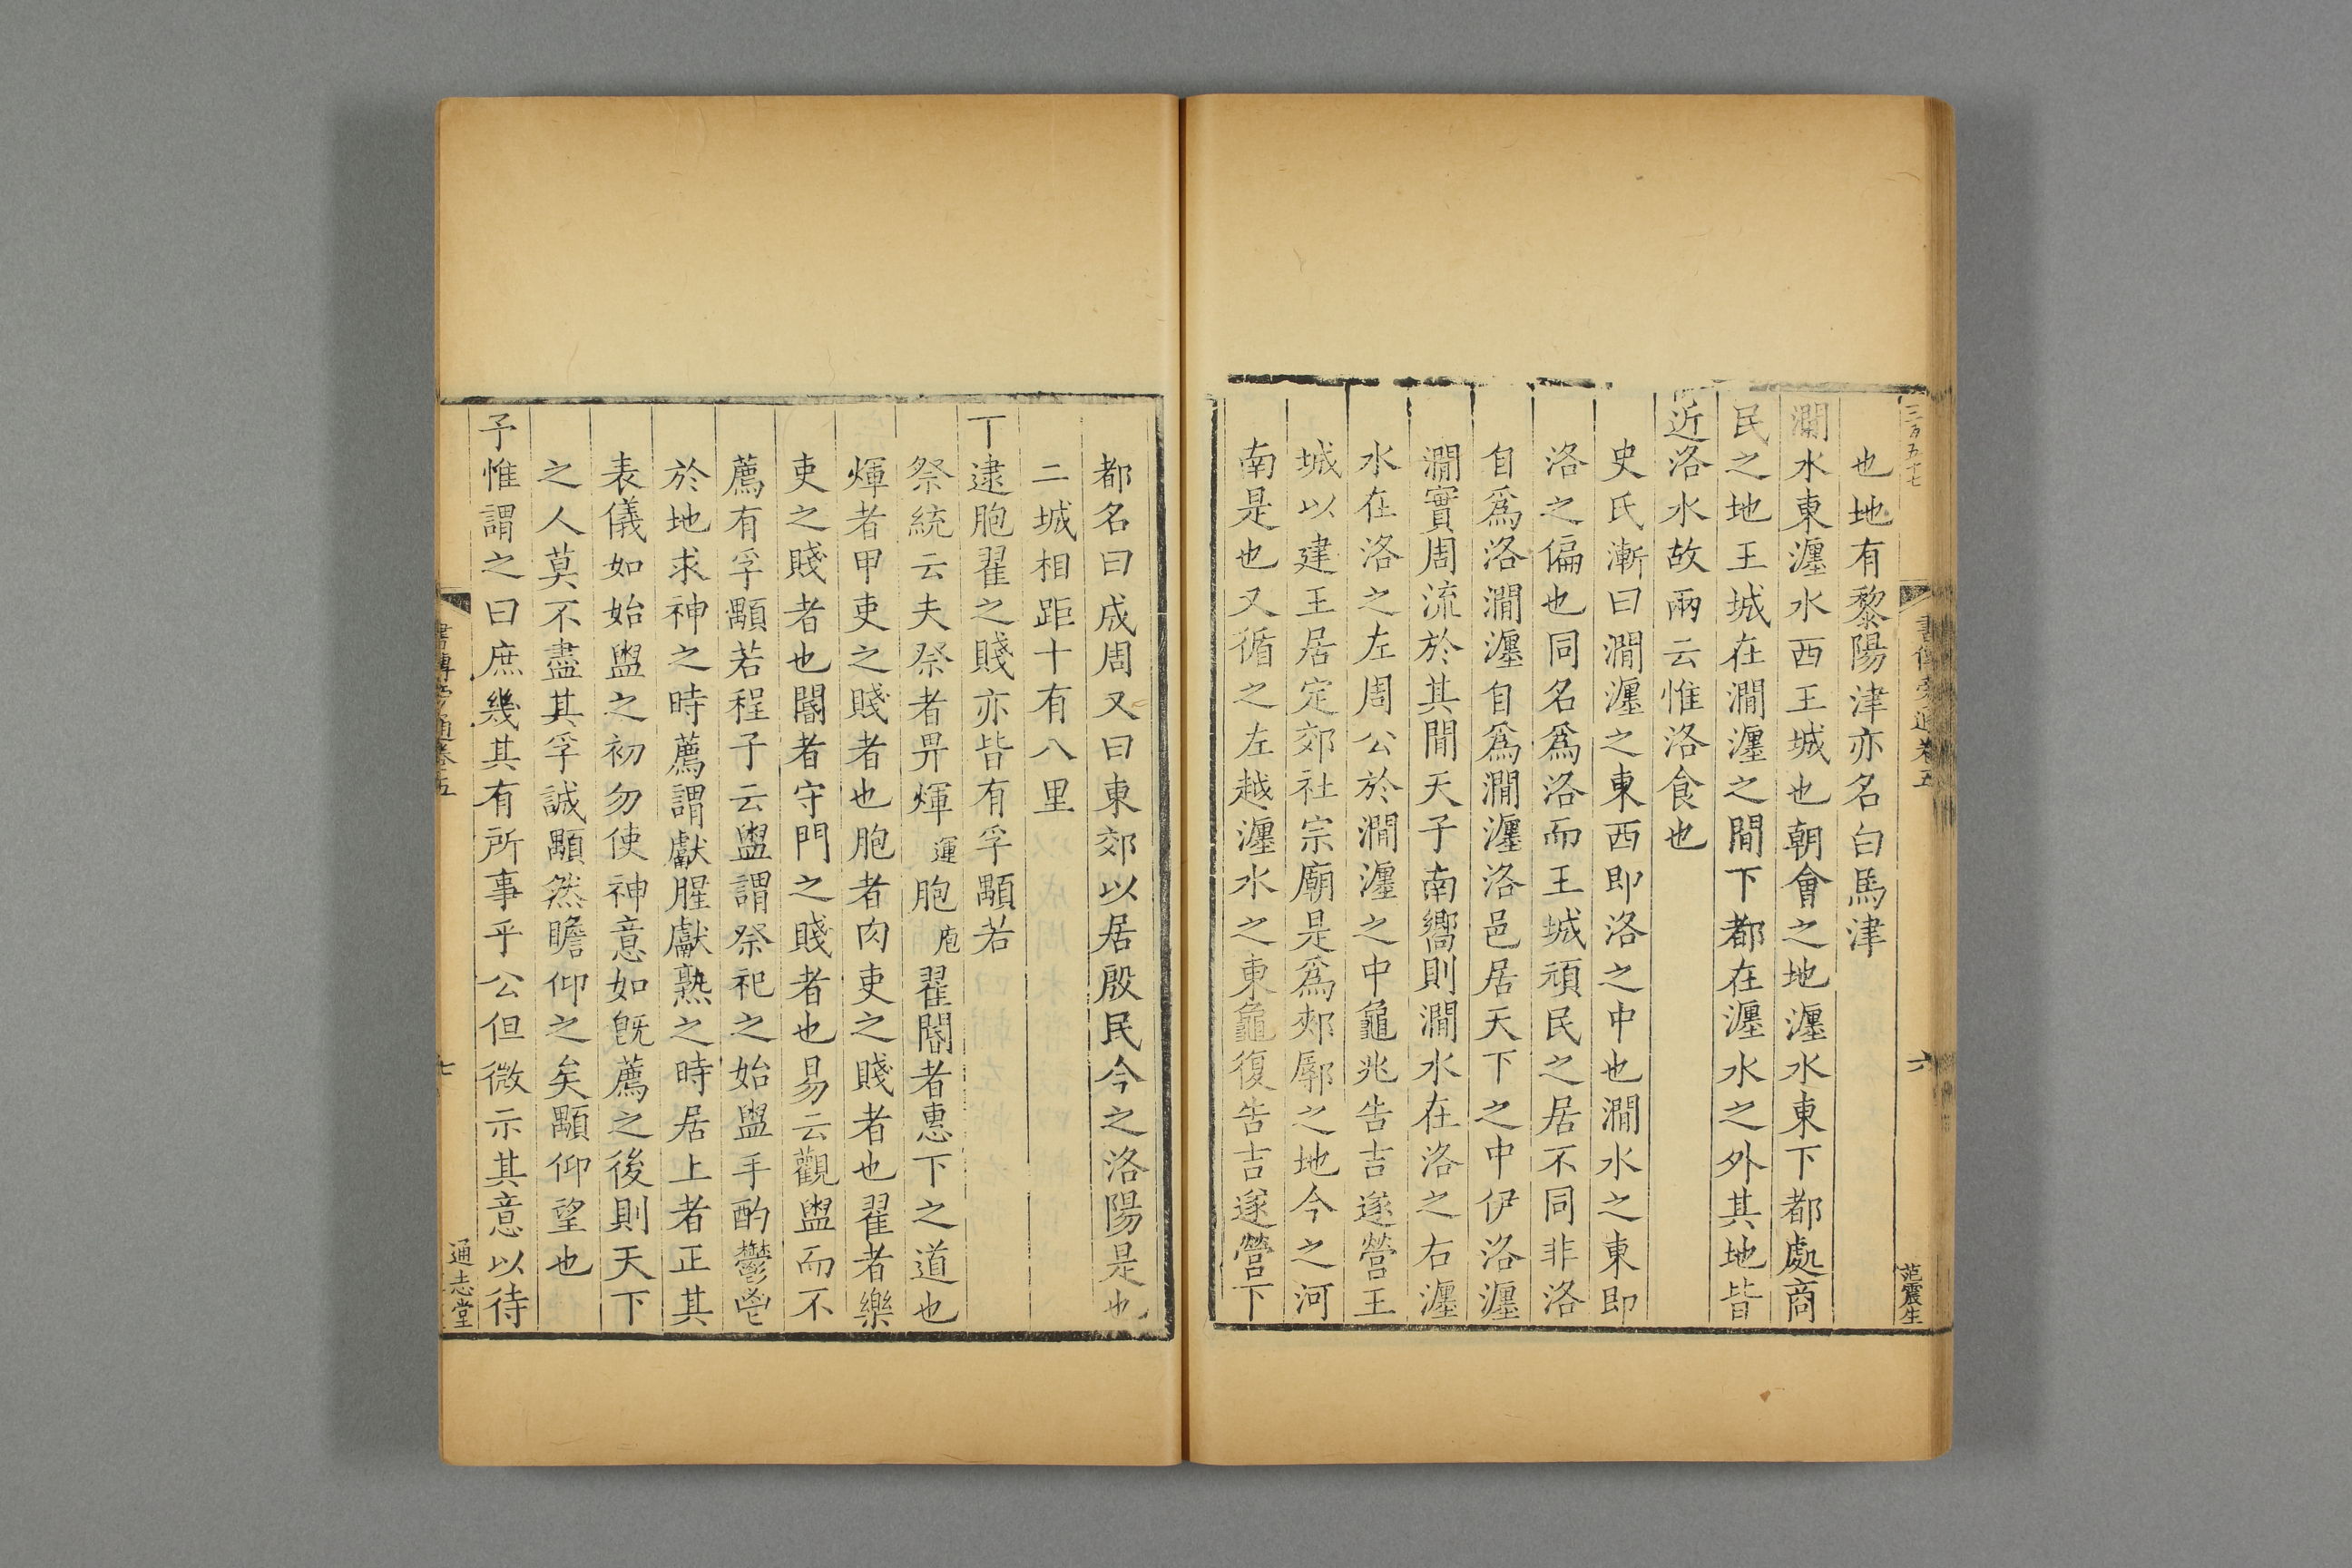 三百五十七
書傳旁通卷五
六
范震生
也地有黎陽津亦名白馬津
澗水東瀍水西王城也朝會之地瀍水東下都處商
民之地王城在澗瀍之間下都在瀍水之外其地皆
近洛水故兩云惟洛食也
史氏漸曰澗瀍之東西即洛之中也澗水之東即
洛之偏也同名爲洛而王城頑民之居不同非洛
自爲洛澗瀍自爲澗瀍洛邑居天下之中伊洛瀍
澗實周流於其間天子南嚮則澗水在洛之右瀍
水在洛之左周公於澗瀍之中龜兆告吉遂營王
城以建王居定郊社宗廟是爲郟鄏之地今之河
南是也又循之左越瀍水之東龜復告吉遂營下
都名曰成周又曰東郊以居殷民今之洛陽是也
二城相距十有八里
丁逮胞翟之賤亦皆有孚顒若
祭統云夫祭者畀煇運胞庖翟閽者惠下之道也
煇者甲吏之賤者也胞者肉吏之賤者也翟者樂
吏之賤者也閽者守門之賤者也易云觀盥而不
薦有孚顒若程子云盥謂祭祀之始盥手酌鬱鬯
於地求神之時薦謂獻腥獻熟之時居上者正其
表儀如始盥之初勿使神意如旣薦之後則天下
之人莫不盡其孚誠顒然瞻仰之矣顒仰望也
予惟謂之曰庶幾其有所事乎公但微示其意以待
書傳旁通卷五
七
通志堂